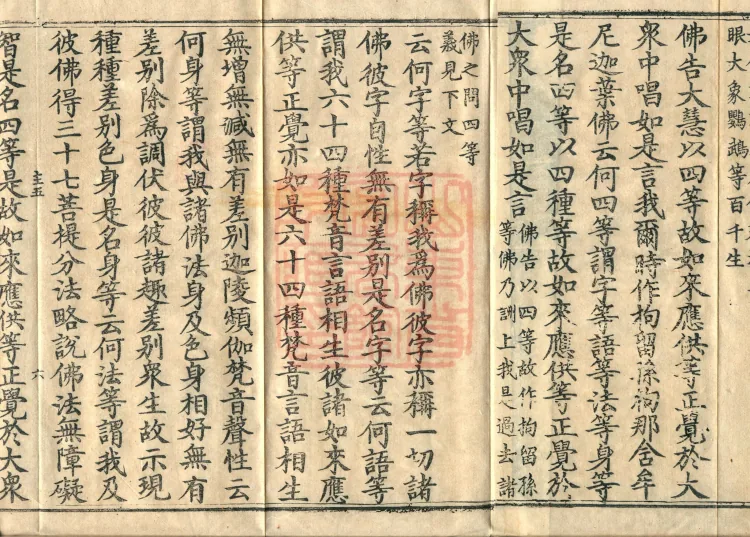 眼大象鸚鵡等百千生
佛告大慧以四等故如來應供等正覺於大
衆中唱如是言我爾時作拘留孫拘那含牟
尼迦葉佛云何四等謂字等語等法等身等
是名四等以四種等故如來應供等正覺於
大衆中唱如是言
佛告以四等故作拘留孫
等佛乃訓上我是過去諸
佛之問四等
義見下文
云何字等若字稱我爲佛彼字亦稱一切諸
佛彼字自性無有差別是名字等云何語等
謂我六十四種梵音言語相生彼諸如來應
供等正覺亦如是六十四種梵音言語相生
無增無減無有差別迦陵頻伽梵音聲性云
何身等謂我與諸佛法身及色身相好無有
差別除爲調伏彼彼諸趣差別衆生故示現
種種差別色身是名身等云何法等謂我及
彼佛得三十七菩提分法略說佛法無障礙
主五 六
智是名四等是故如來應供等正覺於大衆